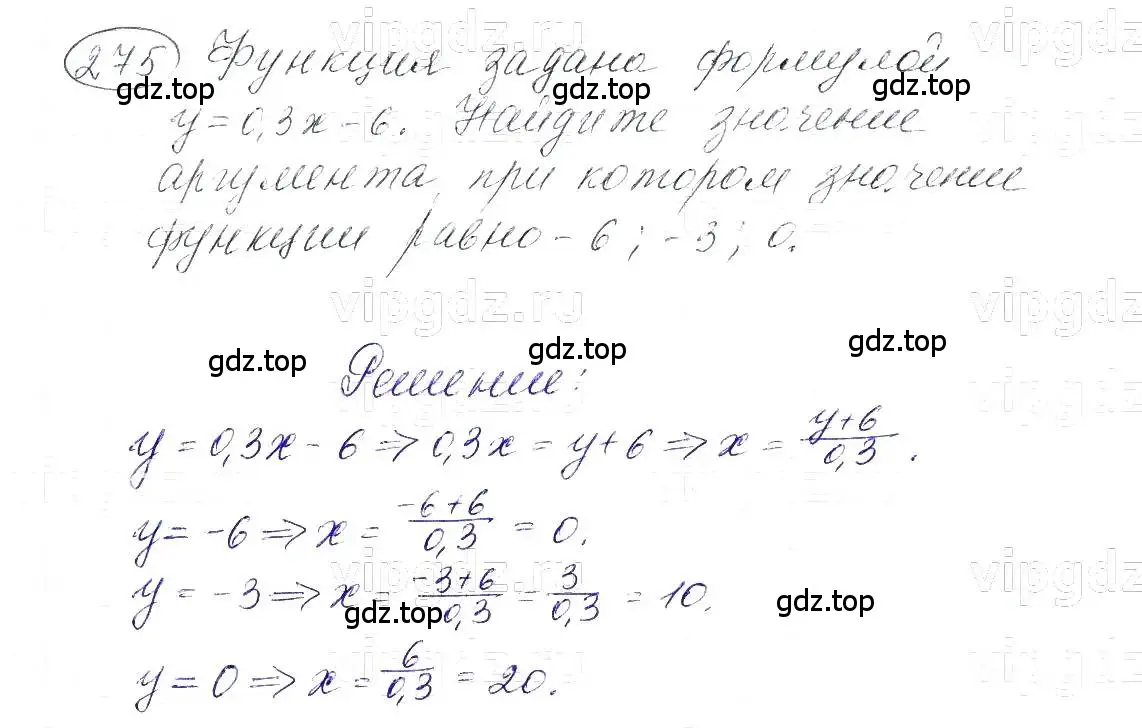 275 Функция задана формулой
y = 0,3x - 6. Найдите значение
аргумента, при котором значение
функции равно - 6 ; -3 ; 0.
Решение:
y = 0,3x - 6 => 0,3x = y + 6 => x = (y+6)/0,3 .
y = -6 => x = (-6+6)/0,3 = 0.
y = -3 => x = (-3+6)/0,3 = 3/0,3 = 10.
y = 0 => x = 6/0,3 = 20.
gdz.top
gdz.top
gdz.top
gdz.top
gdz.top
gdz.top
gdz.top
gdz.top
vipgdz.ru
vipgdz.ru
vipgdz.ru
vipgdz.ru
vipgdz.ru
vipgdz.ru